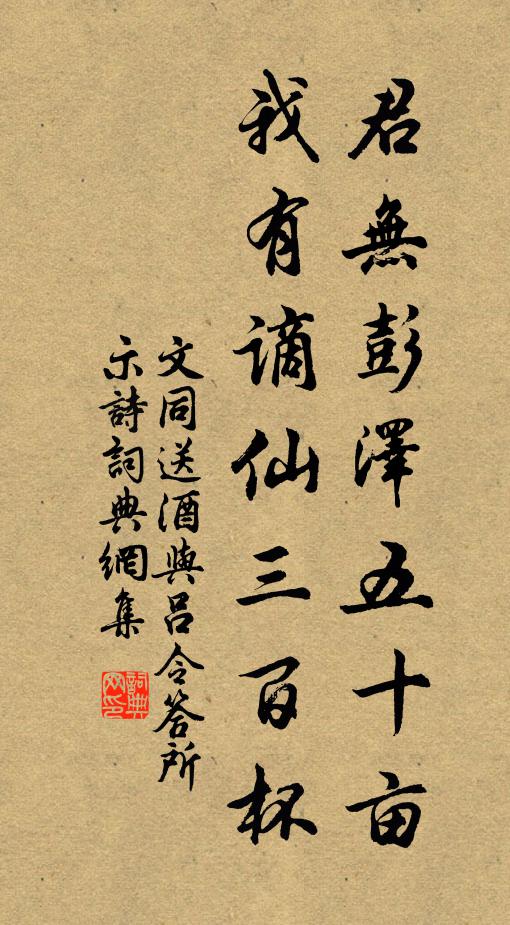 君無彭澤五十亩
我有謫仙三百杯
文同送酒與呂令答所
示詩詞典網集
詞典
网印